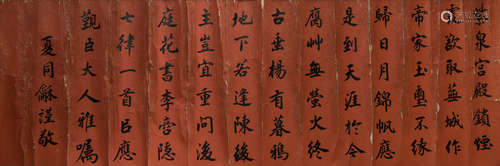 紫泉宮殿鎖煙
霞欲取蕪城作
帝家玉璽不緣
歸日月錦帆應
是到天涯於今
腐艸無螢火終
古垂楊有暮鴉
地下若逢陳後
主豈宜重問後
庭花書李商隱
七律一首㠯應
觀臣大人雅囑
夏同龢謹敬